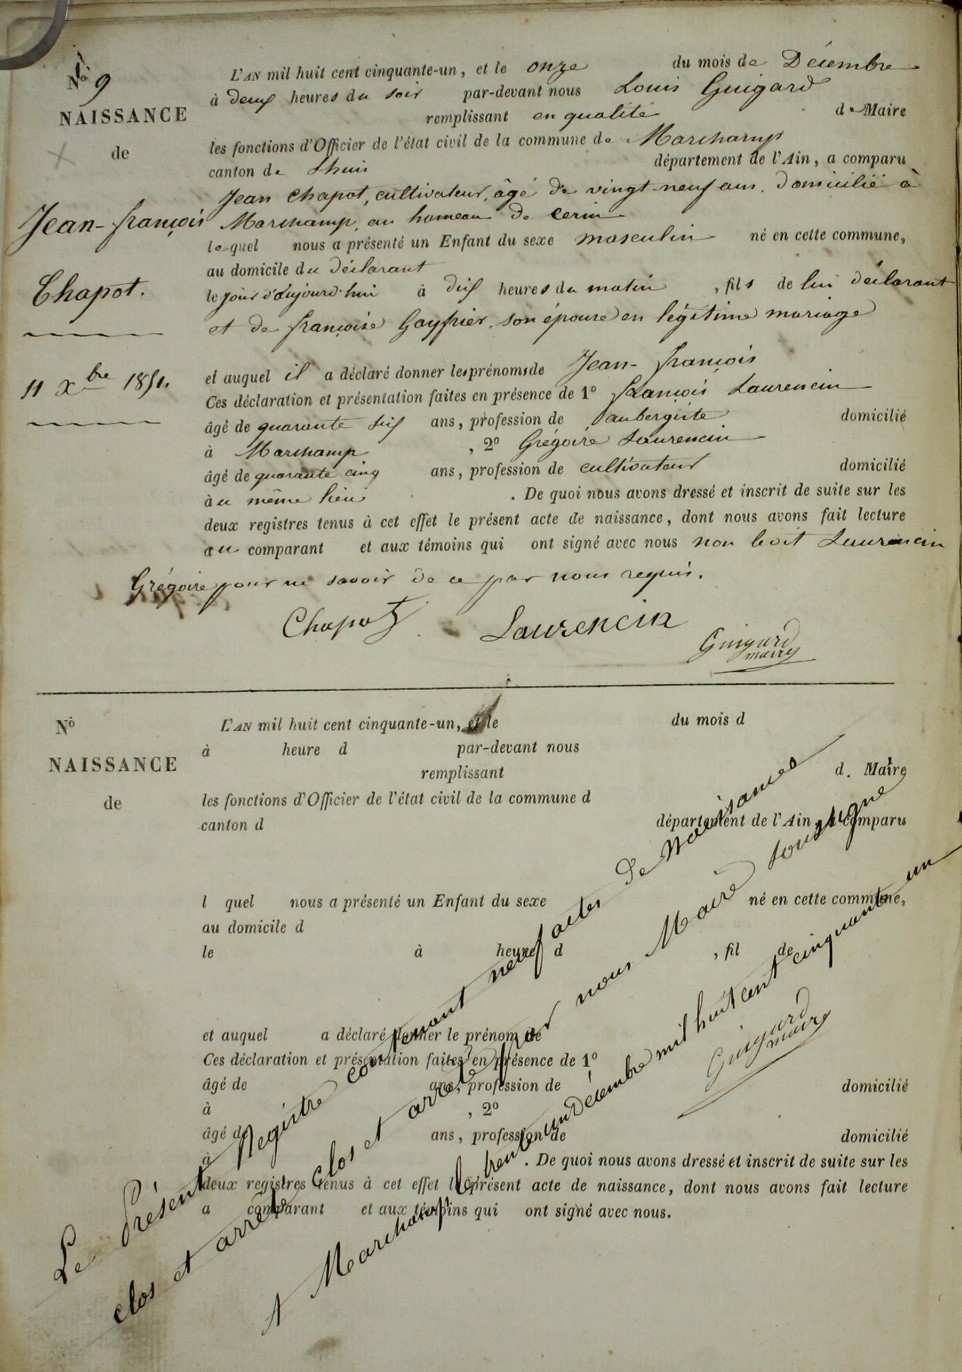 No 9
NAISSANCE
de
Jean-françois
Chapot.
11 Xbre 1851.
L'AN mil huit cent cinquante-un, et le onze du mois de Décembre
à deux heures du soir par-devant nous Louis Guigard
remplissant en qualité de Maire
les fonctions d'Officier de l'état civil de la commune de Marchamp
canton de Lhuis département de l'Ain, a comparu
Jean Chapot, cultivateur, âgé de vingt-neuf ans. Domicilié à
Marchamp, au hameau de Cerin
lequel nous a présenté un Enfant du sexe masculin né en cette commune,
au domicile du déclarant
le jour d'aujourd'hui à dix heures du matin, fils de lui déclarant
et de françoise Gayfrier, son épouse en légitime mariage
et auquel il a déclaré donner les prénoms de Jean-françois
Ces déclaration et présentation faites en présence de 1º françois Laurencin
âgé de quarante six ans, profession de aubergiste domicilié
à Marchamp, 2º Grégoire Laurencin
âgé de quarante cinq ans, profession de cultivateur domicilié
au même lieu. De quoi nous avons dressé et inscrit de suite sur les
deux registres tenus à cet effet le présent acte de naissance, dont nous avons fait lecture
au comparant et aux témoins qui ont signé avec nous non ledit Laurencin
Grégoire pour ne savoir de ce par nous requis.
Chapot Laurencin Guigard
maire
Nº
NAISSANCE
de
L'AN mil huit cent cinquante-un, et le du mois d
à heure d par-devant nous
remplissant d. Maire
les fonctions d'Officier de l'état civil de la commune d
canton d département de l'Ain, a comparu
l quel nous a présenté un Enfant du sexe né en cette commune,
au domicile d
le à heure d , fil de
et auquel a déclaré donner le prénom de
Ces déclaration et présentation faites en présence de 1º
âgé de ans, profession de domicilié
à , 2º
âgé de ans, profession de domicilié
à . De quoi nous avons dressé et inscrit de suite sur les
deux registres tenus à cet effet le présent acte de naissance, dont nous avons fait lecture
a comparant et aux témoins qui ont signé avec nous.
Le Présent Registre contenant neuf actes de Naissances
clos et arrêté clos et arrêté par nous Maire soussigné
A Marchamp le trente un décembre mil huit cent cinquante un
Guigard
maire